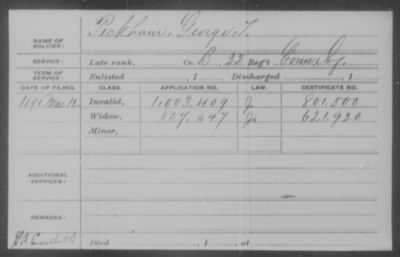 Peckham, George T.
NAME OF SOLDIER:
SERVICE: Late rank, Co. B, 22 Reg't Conn. Inf.
TERM OF SERVICE: Enlisted , 1 Discharged , 1
DATE OF FILING. CLASS. APPLICATION NO. LAW. CERTIFICATE NO.
1891 Mar 12 Invalid, 1,003,409 J 801,500
Widow, 807,647 621,920
Minor,
ADDITIONAL SERVICES:
REMARKS:
Died , 1 , at